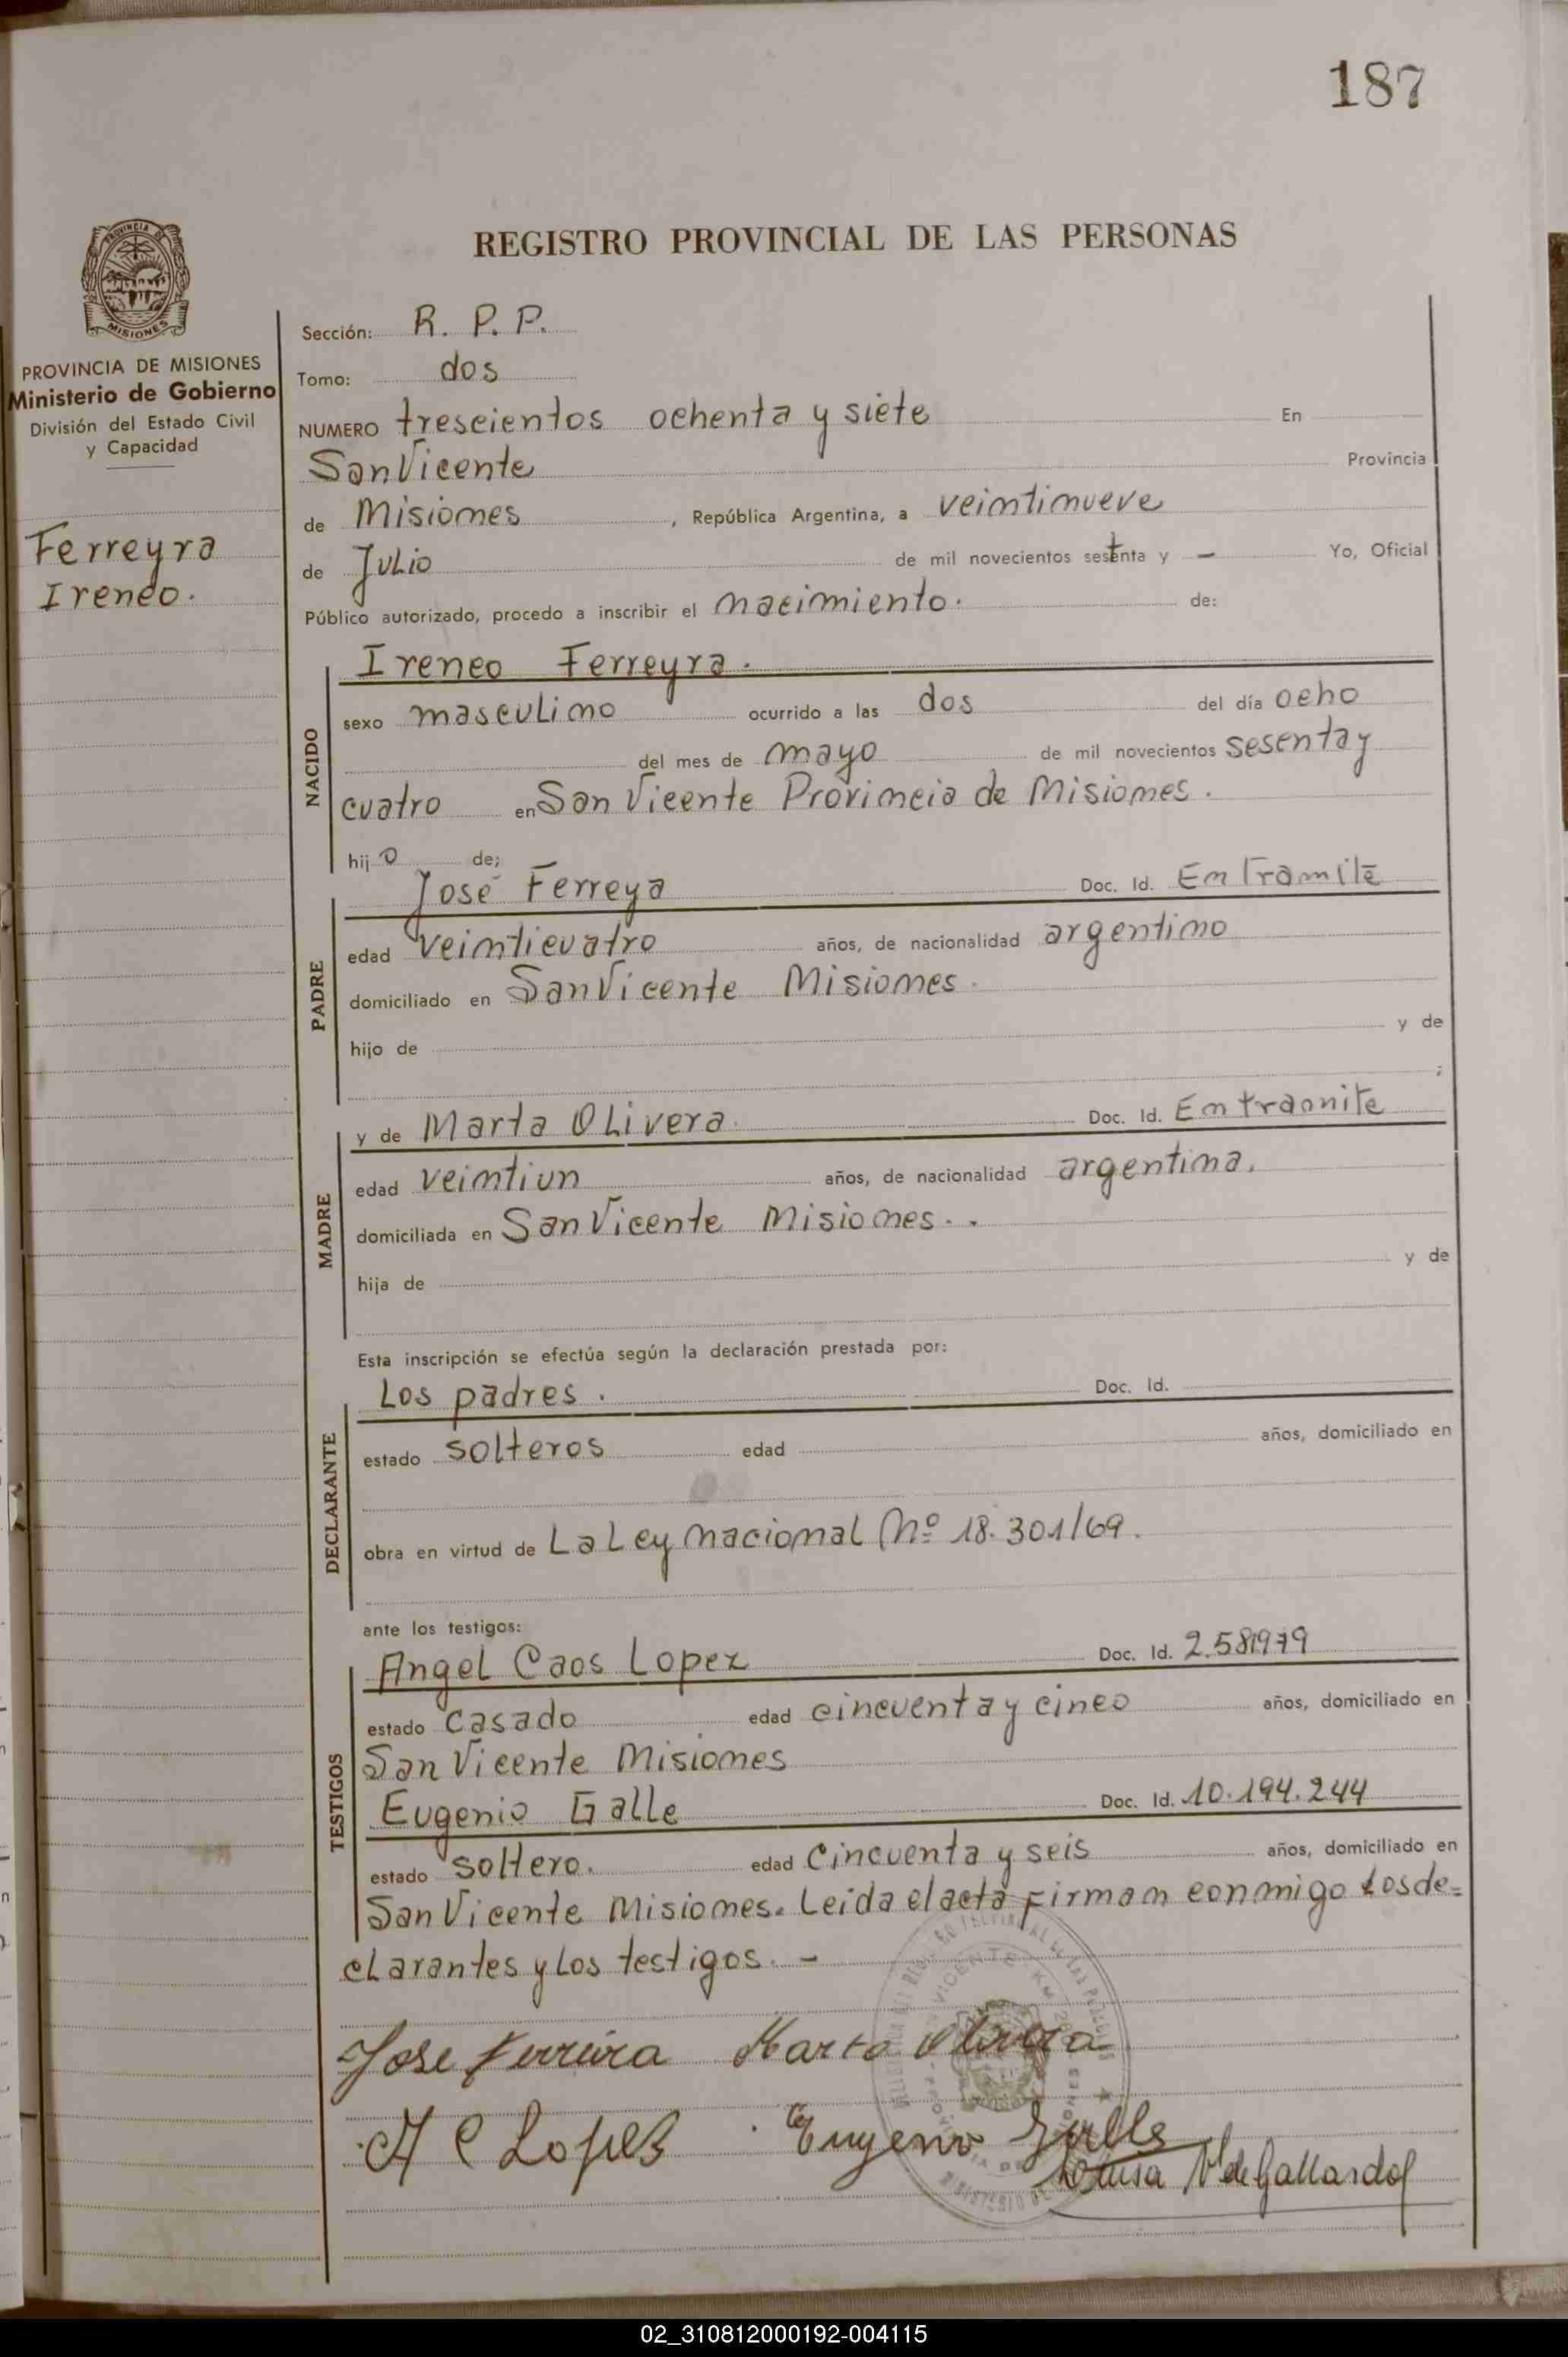 187
REGISTRO PROVINCIAL DE LAS PERSONAS
PROVINCIA DE MISIONES
Ministerio de Gobierno
División del Estado Civil
y Capacidad
Ferreyra
Ireneo.
Sección: R. P. P.
Tomo: dos
NUMERO trescientos ochenta y siete En
San Vicente Provincia
de Misiones, República Argentina, a veintinueve
de Julio de mil novecientos setenta y - Yo, Oficial
Público autorizado, procedo a inscribir el nacimiento. de:
NACIDO
Ireneo Ferreyra.
sexo masculino ocurrido a las dos del día ocho
del mes de mayo de mil novecientos sesenta y
cuatro en San Vicente Provincia de Misiones.
hijo de;
PADRE
José Ferreya Doc. Id. En Tramite
edad veinticuatro años, de nacionalidad argentino
domiciliado en San Vicente Misiones.
hijo de y de
;
MADRE
y de Marta Olivera. Doc. Id. En tramite
edad veintiun años, de nacionalidad argentina.
domiciliada en San Vicente Misiones. .
hija de y de
Esta inscripción se efectúa según la declaración prestada por:
DECLARANTE
Los padres. Doc. Id.
estado solteros edad años, domiciliado en
obra en virtud de La Ley nacional Nº 18.301/69.
ante los testigos:
TESTIGOS
Angel Caos Lopez Doc. Id. 2.581979
estado casado edad cincuenta y cinco años, domiciliado en
San Vicente Misiones
Eugenio Galle Doc. Id. 10.194.244
estado soltero. edad cincuenta y seis años, domiciliado en
San Vicente Misiones. Leida el acta firman conmigo los de=
clarantes y los testigos. -
Jose Ferreira Marta Olivera
A C Lopez Eugenio Galle
Luisa V de Gallardo
02_310812000192-004115